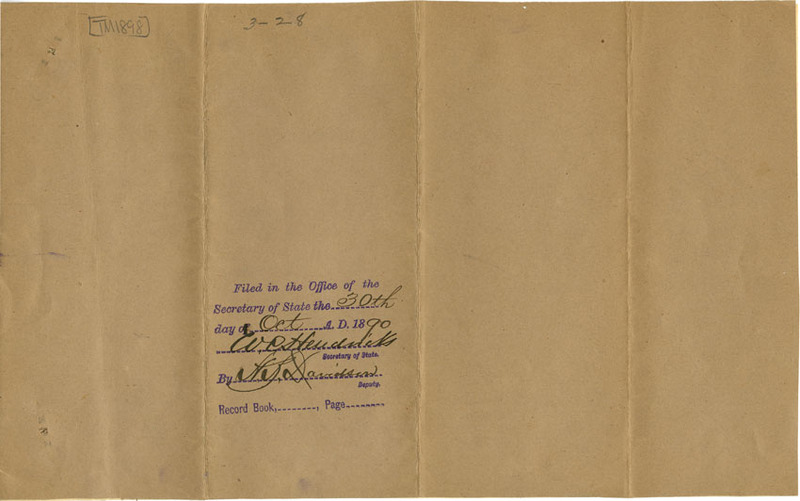 TM1898
3-28
Filed in the Office of the
Secretary of State the 30th
day of Oct A. D. 1890
W C Hendricks
Secretary of State.
By Davidson
Deputy.
Record Book, , Page